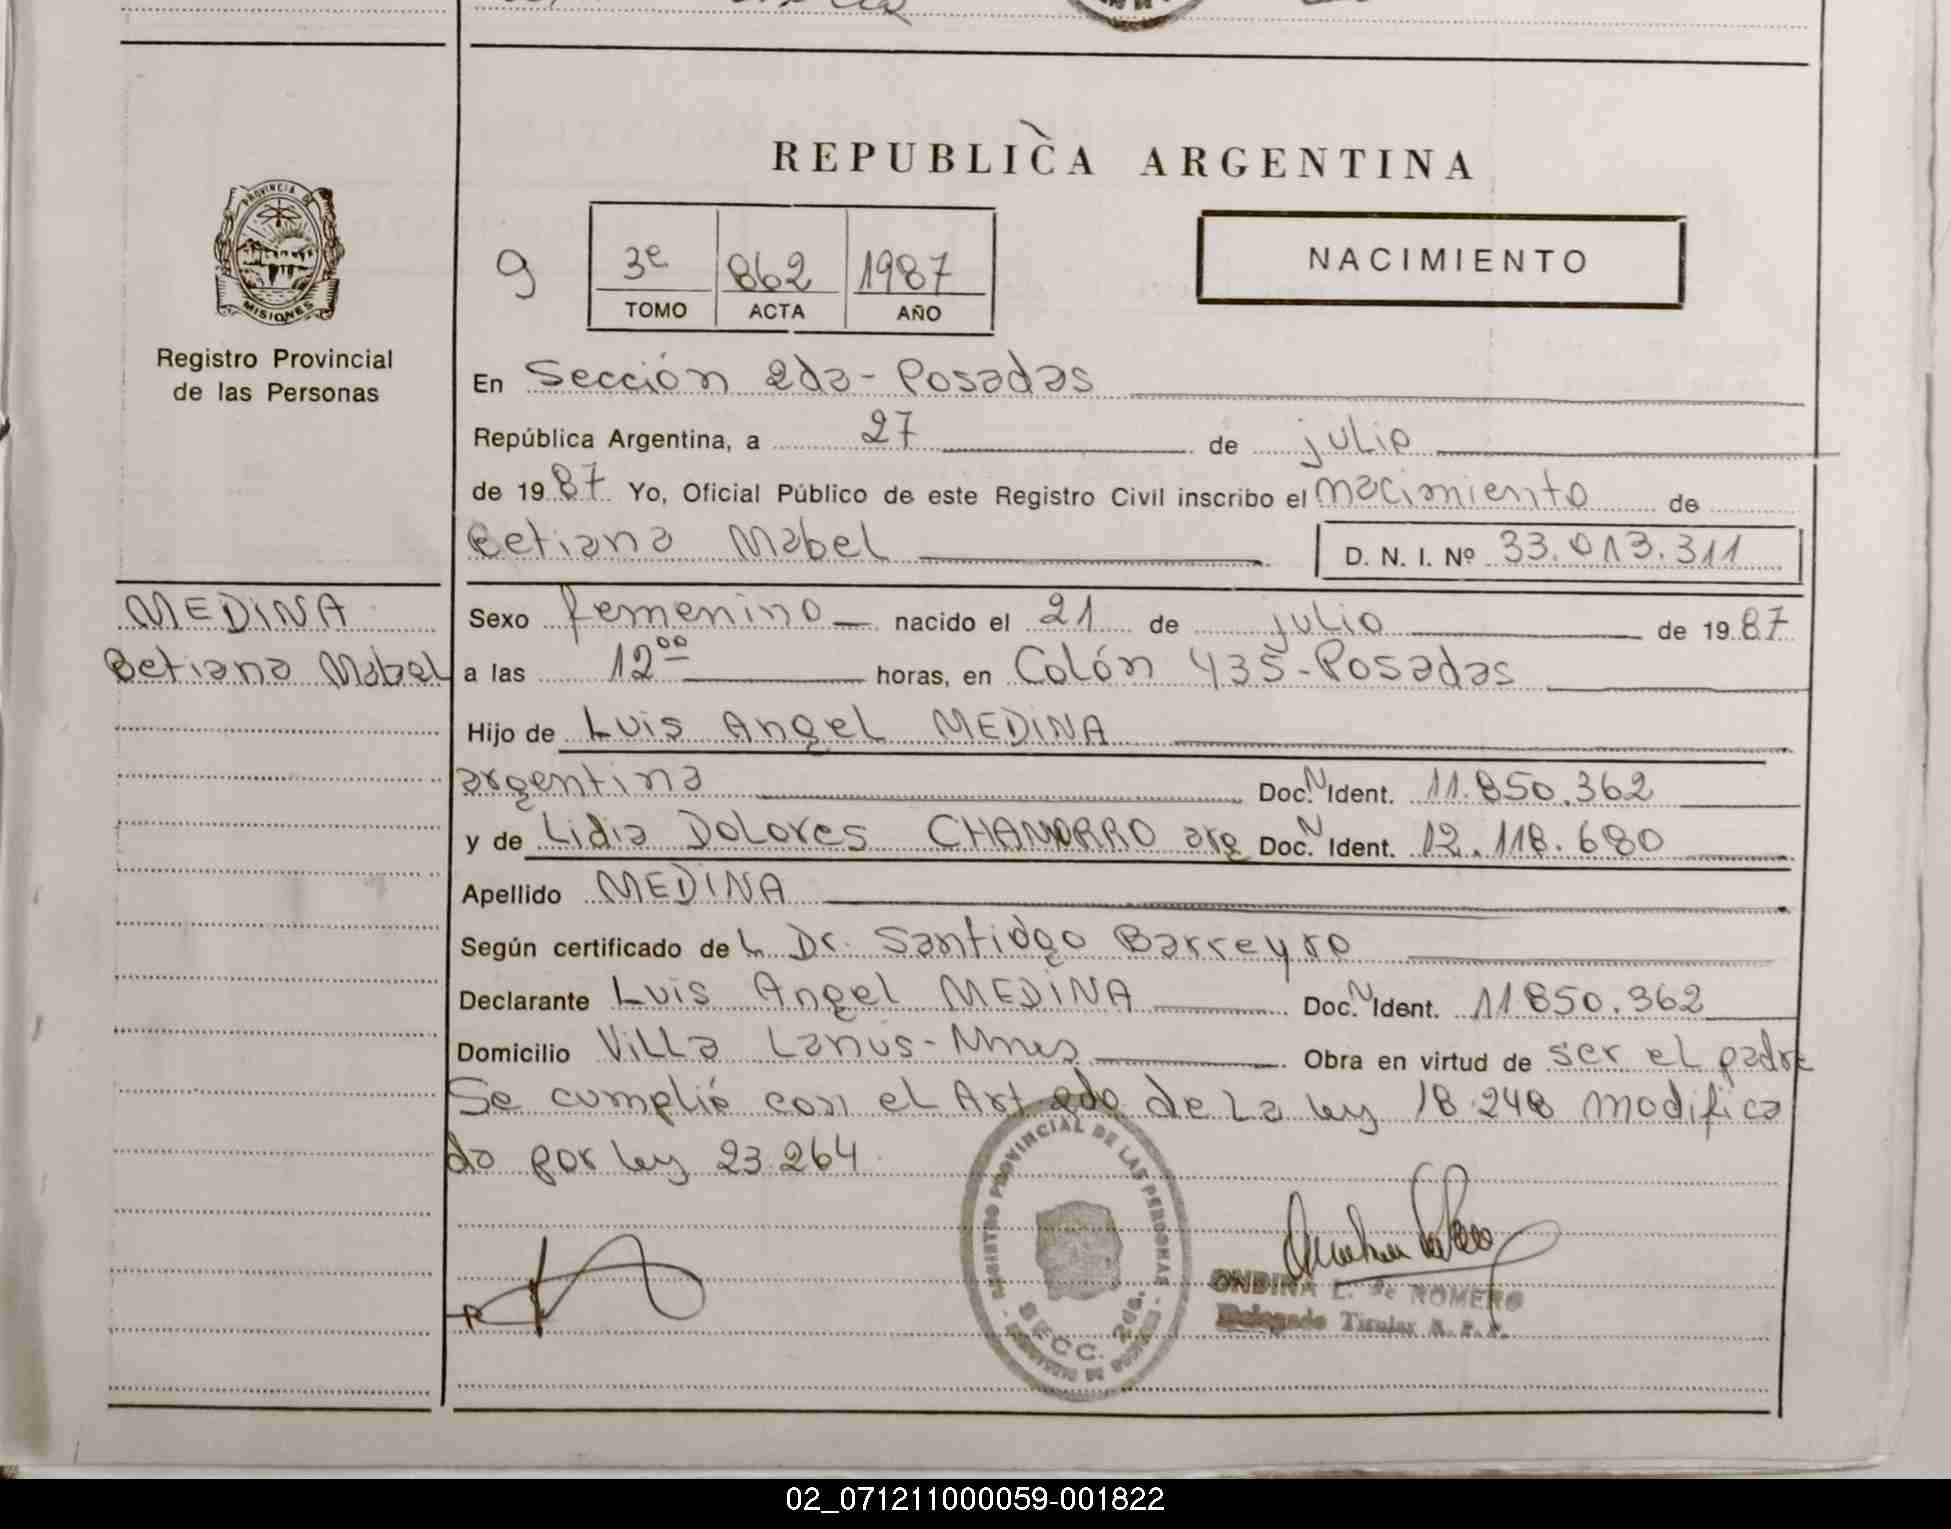 REPUBLICA ARGENTINA
PROVINCIA DE
MISIONES
Registro Provincial
de las Personas
9
3e 862 1987
TOMO ACTA AÑO
NACIMIENTO
En Sección 2da - Posadas
República Argentina, a 27 de julio
de 19 87 Yo, Oficial Público de este Registro Civil inscribo el nacimiento de
Betiana Mabel D. N. I. Nº 33.013.311
MEDINA
Betiana Mabel
Sexo femenino nacido el 21 de julio de 19 87
a las 12 00 horas, en Colón 435 - Posadas
Hijo de Luis Angel MEDINA
argentina Doc. N Ident. 11.850.362
y de Lidia Dolores CHAMORRO arg Doc. N Ident. 12.118.680
Apellido MEDINA
Según certificado de L Dr. Santiago Barreyro
Declarante Luis Angel MEDINA Doc. N Ident. 11850.362
Domicilio Villa Lanús - Mnes Obra en virtud de ser el padre
Se cumplió con el Art 2do de La ley 18.248 modifica
do por ley 23.264
REGISTRO PROVINCIAL DE LAS PERSONAS
SECC. 2da.
ONDINA L. de ROMERO
Delegado Titular R. P. P.
02_071211000059-001822